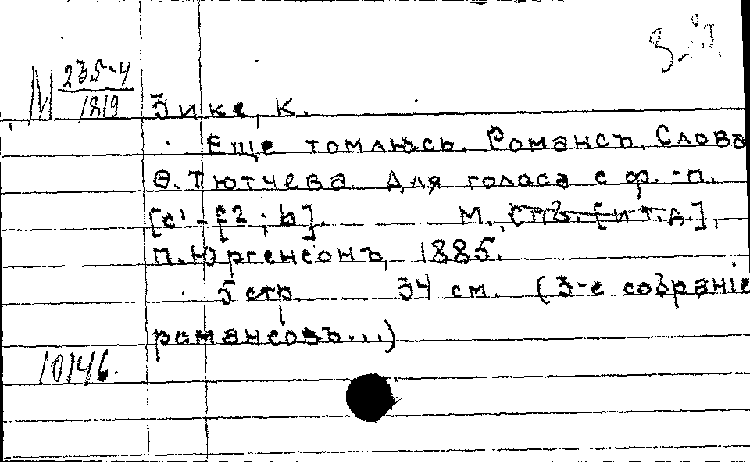 М 235-4
1819
Зике, К.
Еще томлюсь. Романсъ. Слова
Ѳ. Тютчева. Для голоса с ф.-п.
[c¹-f2; b]. М., Спб. [и т.д.],
П. Юргенсонъ, 1885.
5 стр. 34 см. (3-е собраніе
романсовъ...)
10146.